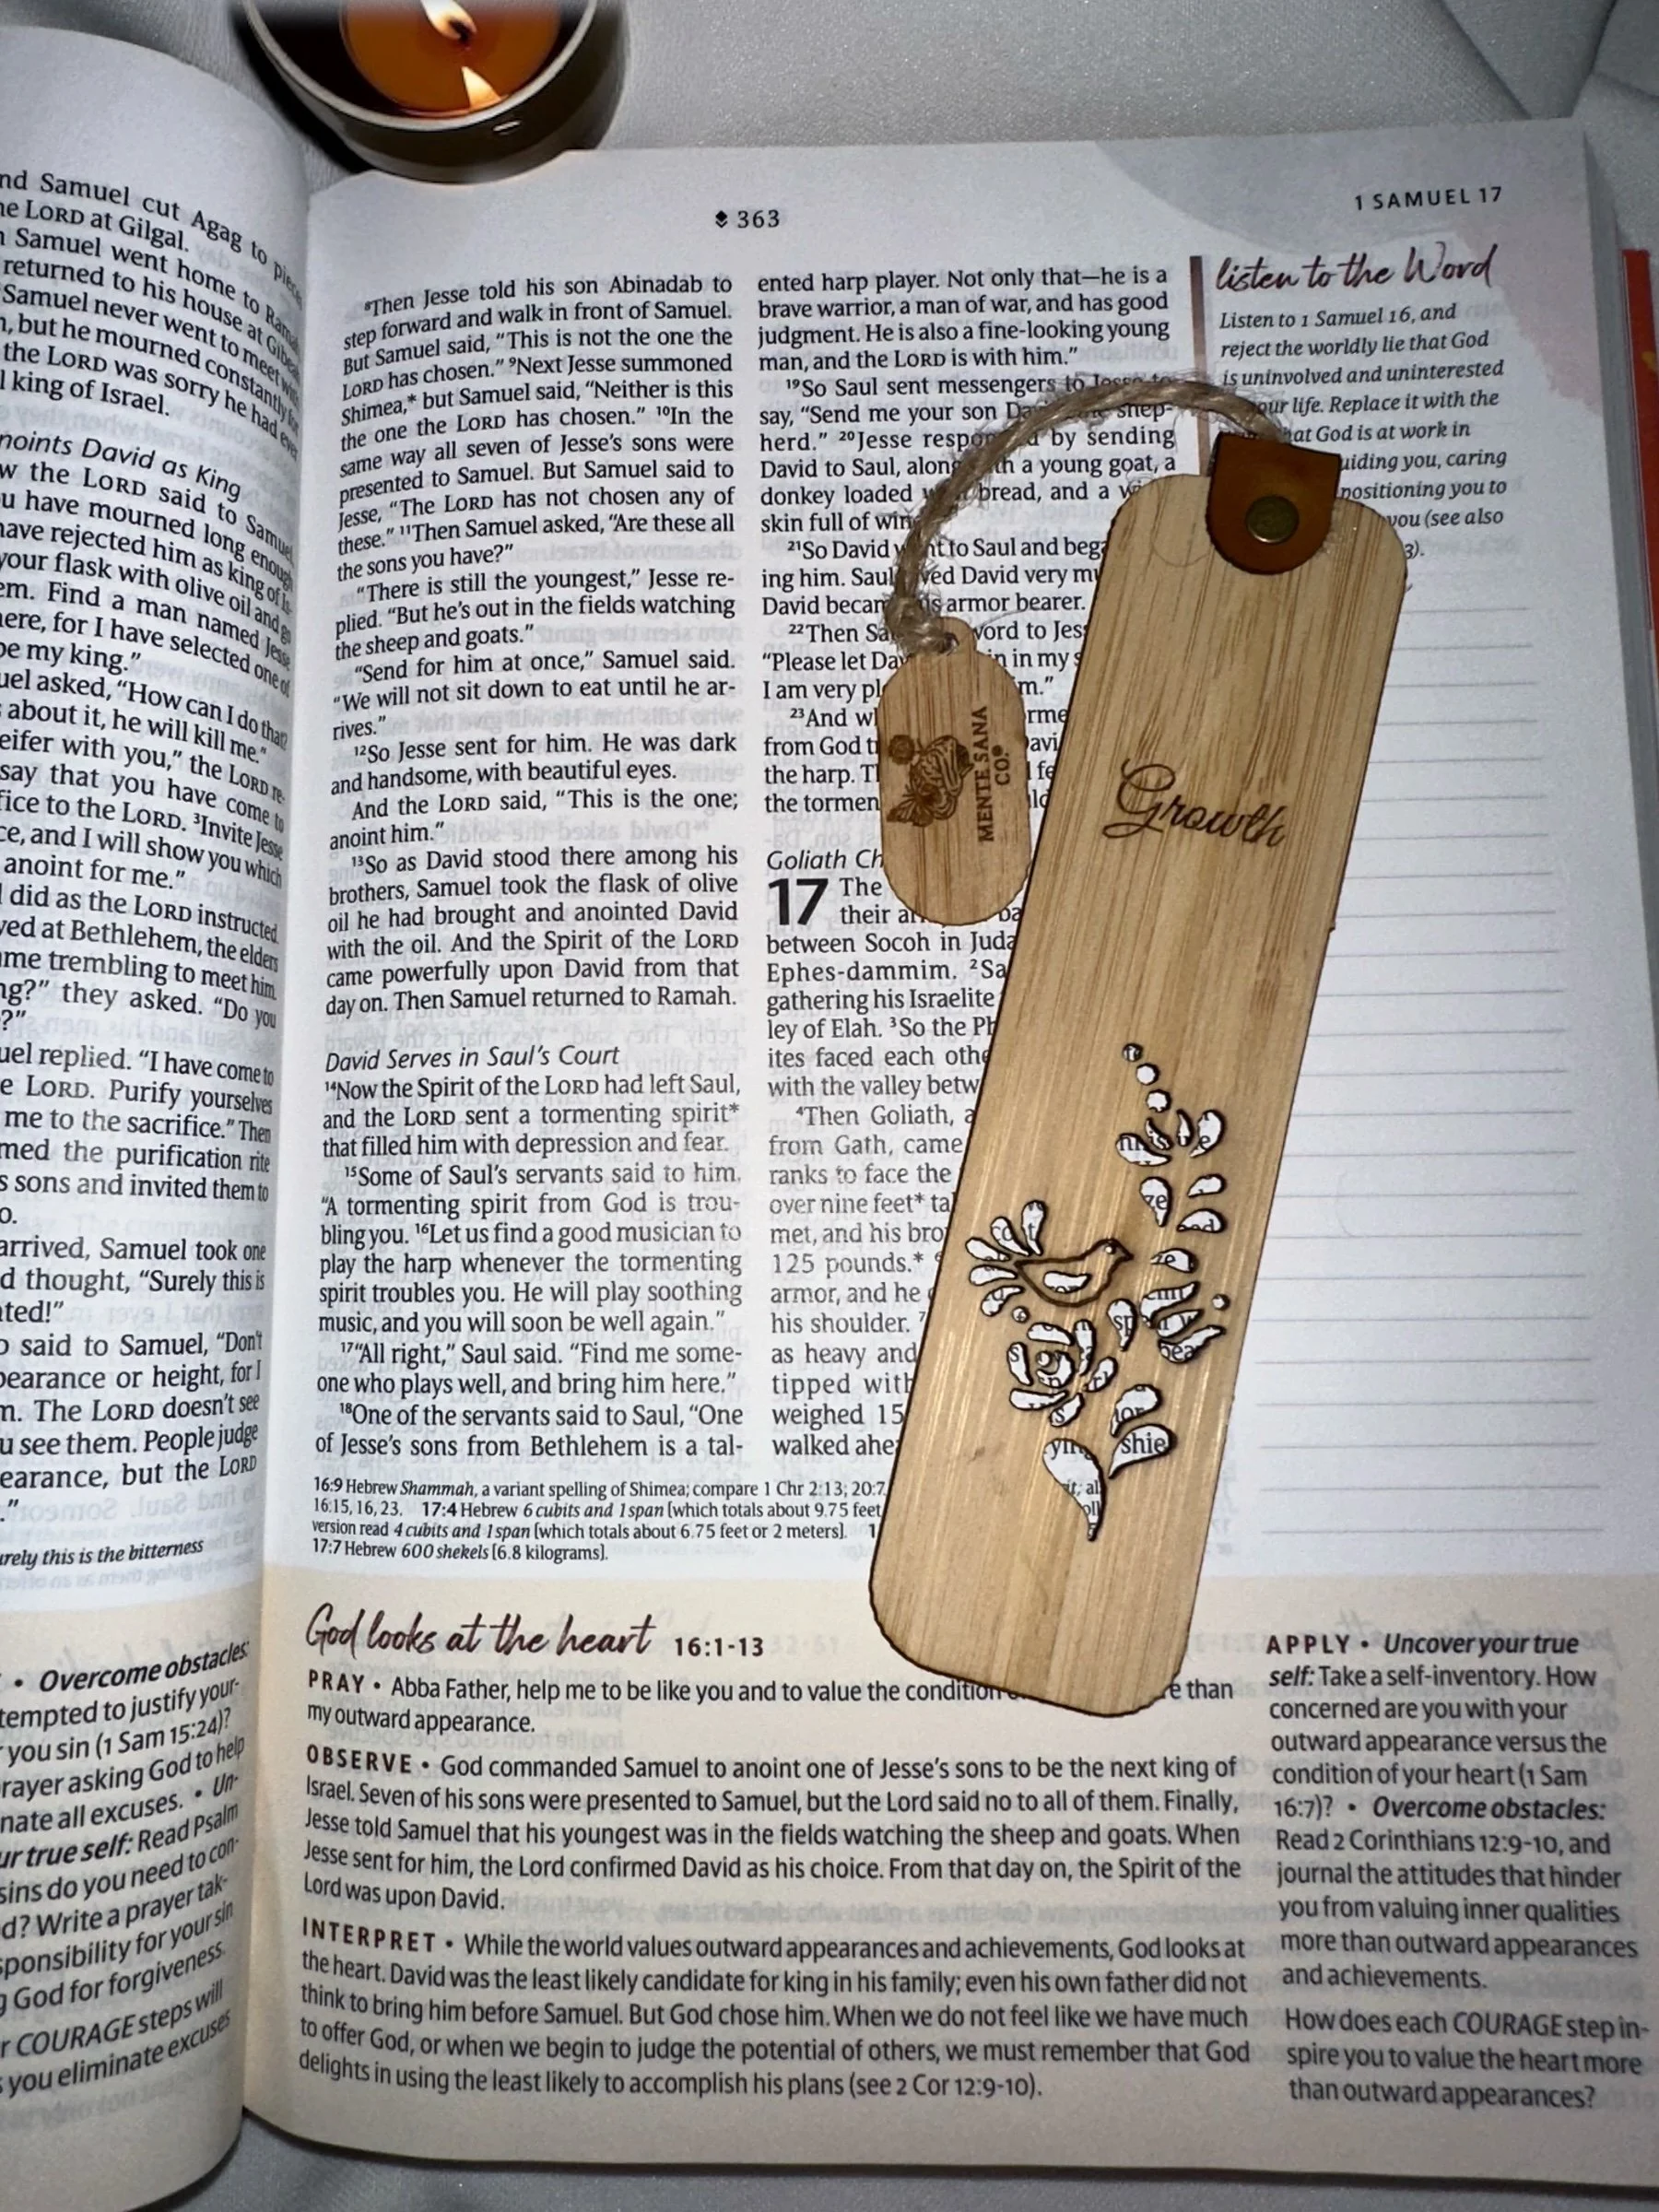 nd Samuel cut Agag to
LORD at Gilgal.
Samuel went home to
returned to his house at
Samuel never went to meet with
but he mourned constantly for
the LORD was sorry he had ever
king of Israel.
David as King
the LORD said to Samuel,
have mourned long enough
have rejected him as king of Is-
your flask with olive oil and go
Find a man named Jesse
for I have selected one of
be my king.”
asked, “How can I do that?
about it, he will kill me.”
with you,” the LORD re-
say that you have come to
to the LORD. ³Invite Jesse
and I will show you which
anoint for me.”
did as the LORD instructed.
at Bethlehem, the elders
trembling to meet him.
they asked. “Do you
replied. “I have come to
LORD. Purify yourselves
me to the sacrifice.” Then
the purification rite
sons and invited them to
arrived, Samuel took one
thought, “Surely this is
said to Samuel, “Don’t
or height, for I
The LORD doesn’t see
you see them. People judge
but the LORD
this is the bitterness
• Overcome obstacles:
to justify your-
you sin (1 Sam 15:24)?
asking God to help
all excuses. • Un-
true self: Read Psalm
sins do you need to con-
Write a prayer tak-
for your sin
God for forgiveness.
COURAGE steps will
you eliminate excuses
363
1 SAMUEL 17
⁸Then Jesse told his son Abinadab to
step forward and walk in front of Samuel.
But Samuel said, “This is not the one the
LORD has chosen.” ⁹Next Jesse summoned
Shimea,* but Samuel said, “Neither is this
the one the LORD has chosen.” ¹⁰In the
same way all seven of Jesse’s sons were
presented to Samuel. But Samuel said to
Jesse, “The LORD has not chosen any of
these.” ¹¹Then Samuel asked, “Are these all
the sons you have?”
“There is still the youngest,” Jesse re-
plied. “But he’s out in the fields watching
the sheep and goats.”
“Send for him at once,” Samuel said.
“We will not sit down to eat until he ar-
rives.”
¹²So Jesse sent for him. He was dark
and handsome, with beautiful eyes.
And the LORD said, “This is the one;
anoint him.”
¹³So as David stood there among his
brothers, Samuel took the flask of olive
oil he had brought and anointed David
with the oil. And the Spirit of the LORD
came powerfully upon David from that
day on. Then Samuel returned to Ramah.
David Serves in Saul’s Court
¹⁴Now the Spirit of the LORD had left Saul,
and the LORD sent a tormenting spirit*
that filled him with depression and fear.
¹⁵Some of Saul’s servants said to him,
“A tormenting spirit from God is trou-
bling you. ¹⁶Let us find a good musician to
play the harp whenever the tormenting
spirit troubles you. He will play soothing
music, and you will soon be well again.”
¹⁷“All right,” Saul said. “Find me some-
one who plays well, and bring him here.”
¹⁸One of the servants said to Saul, “One
of Jesse’s sons from Bethlehem is a tal-
ented harp player. Not only that—he is a
brave warrior, a man of war, and has good
judgment. He is also a fine-looking young
man, and the LORD is with him.”
¹⁹So Saul sent messengers to Jesse to
say, “Send me your son shep-
herd.” ²⁰Jesse by sending
David to Saul, a young goat, a
donkey loaded bread, and a
skin full of
²¹So David to Saul and
ing him. Saul David very
David armor bearer.
²²Then word to
“Please let in my
I am very
²³And
from God
the harp.
the
Goliath
17 The
their
between Socoh in
Ephes-dammim.
gathering his Israelite
ley of Elah. ³So the
ites faced each
with the valley
⁴Then Goliath,
from Gath, came
ranks to face the
over nine feet*
met, and his
125 pounds.*
armor, and he
his shoulder.
as heavy and
tipped
weighed 15
walked
listen to the Word
Listen to 1 Samuel 16, and
reject the worldly lie that God
is uninvolved and uninterested
your life. Replace it with the
that God is at work in
guiding you, caring
positioning you to
you (see also
MENTE SANA
CO.
Growth
16:9 Hebrew Shammah, a variant spelling of Shimea; compare 1 Chr 2:13; 20:7.
16:15, 16, 23. 17:4 Hebrew 6 cubits and 1 span [which totals about 9.75 feet
version read 4 cubits and 1 span [which totals about 6.75 feet or 2 meters].
17:7 Hebrew 600 shekels [6.8 kilograms].
God looks at the heart 16:1-13
PRAY • Abba Father, help me to be like you and to value the condition than
my outward appearance.
OBSERVE • God commanded Samuel to anoint one of Jesse’s sons to be the next king of
Israel. Seven of his sons were presented to Samuel, but the Lord said no to all of them. Finally,
Jesse told Samuel that his youngest was in the fields watching the sheep and goats. When
Jesse sent for him, the Lord confirmed David as his choice. From that day on, the Spirit of the
Lord was upon David.
INTERPRET • While the world values outward appearances and achievements, God looks at
the heart. David was the least likely candidate for king in his family; even his own father did not
think to bring him before Samuel. But God chose him. When we do not feel like we have much
to offer God, or when we begin to judge the potential of others, we must remember that God
delights in using the least likely to accomplish his plans (see 2 Cor 12:9-10).
APPLY • Uncover your true
self: Take a self-inventory. How
concerned are you with your
outward appearance versus the
condition of your heart (1 Sam
16:7)? • Overcome obstacles:
Read 2 Corinthians 12:9-10, and
journal the attitudes that hinder
you from valuing inner qualities
more than outward appearances
and achievements.
How does each COURAGE step in-
spire you to value the heart more
than outward appearances?